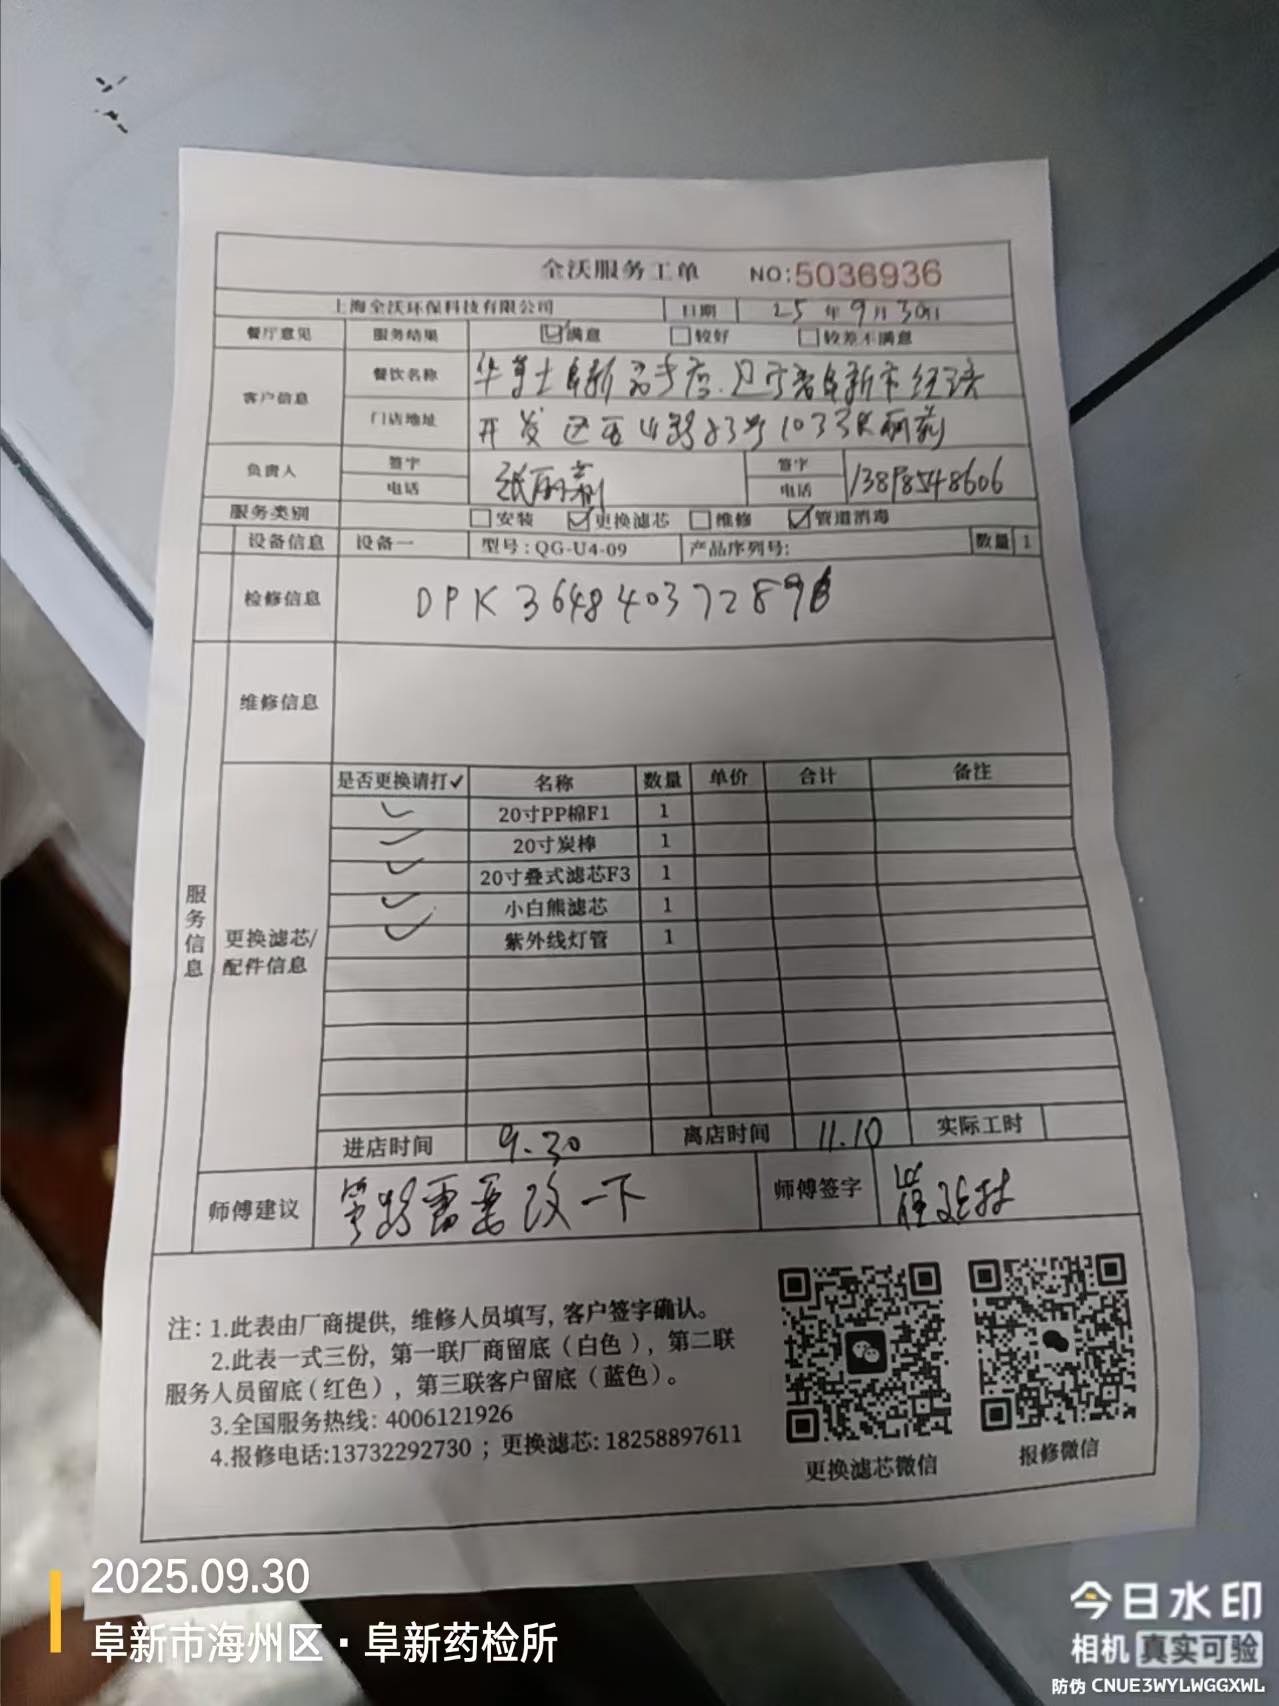 全沃服务工单 NO:5036936
上海全沃环保科技有限公司 日期 25 年 9 月 30日
餐厅意见 服务结果 ☑满意 □较好 □较差不满意
客户信息 餐饮名称 华莱士阜新 店.辽宁省阜新市经济
门店地址 开发区 路83号103 张丽莉
负责人 签字 张丽莉 签字
电话 电话 13898548606
服务类别 □安装 ☑更换滤芯 □维修 ☑管道消毒
设备信息 设备一 型号:QG-U4-09 产品序列号: 数量 1
检修信息 DPK364840372898
维修信息
服务信息
更换滤芯/配件信息
是否更换请打✓ 名称 数量 单价 合计 备注
✓ 20寸PP棉F1 1
✓ 20寸炭棒 1
✓ 20寸叠式滤芯F3 1
✓ 小白熊滤芯 1
✓ 紫外线灯管 1
进店时间 9.30 离店时间 11.10 实际工时
师傅建议 管路需要改一下 师傅签字 崔
注: 1.此表由厂商提供, 维修人员填写, 客户签字确认。
2.此表一式三份, 第一联厂商留底(白色), 第二联
服务人员留底(红色), 第三联客户留底(蓝色)。
3.全国服务热线: 4006121926
4.报修电话:13732292730 ; 更换滤芯: 18258897611
更换滤芯微信 报修微信
2025.09.30
阜新市海州区·阜新药检所
今日水印
相机 真实可验
防伪 CNUE3WYLWGGXWL